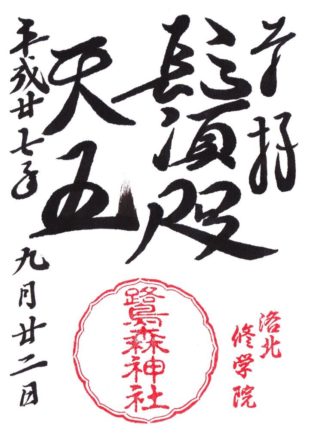 奉拝
洛北
修学院
鬚咫
天王
鷺森神社
平成廿七年九月廿二日